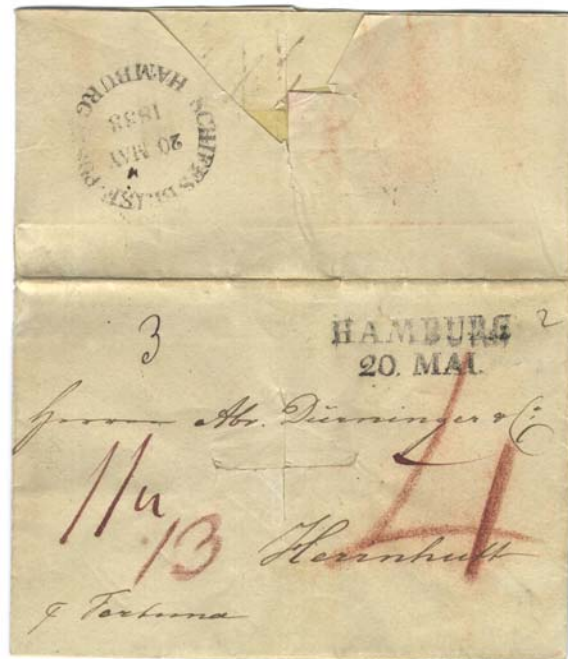 SCHIFFS BRIEF-POST
HAMBURG
20 MAY
1838
3
HAMBURG
2
20. MAI.
Herren Abr. Dürninger & C.º
11
13
4
Herrnhutt
Fortuna